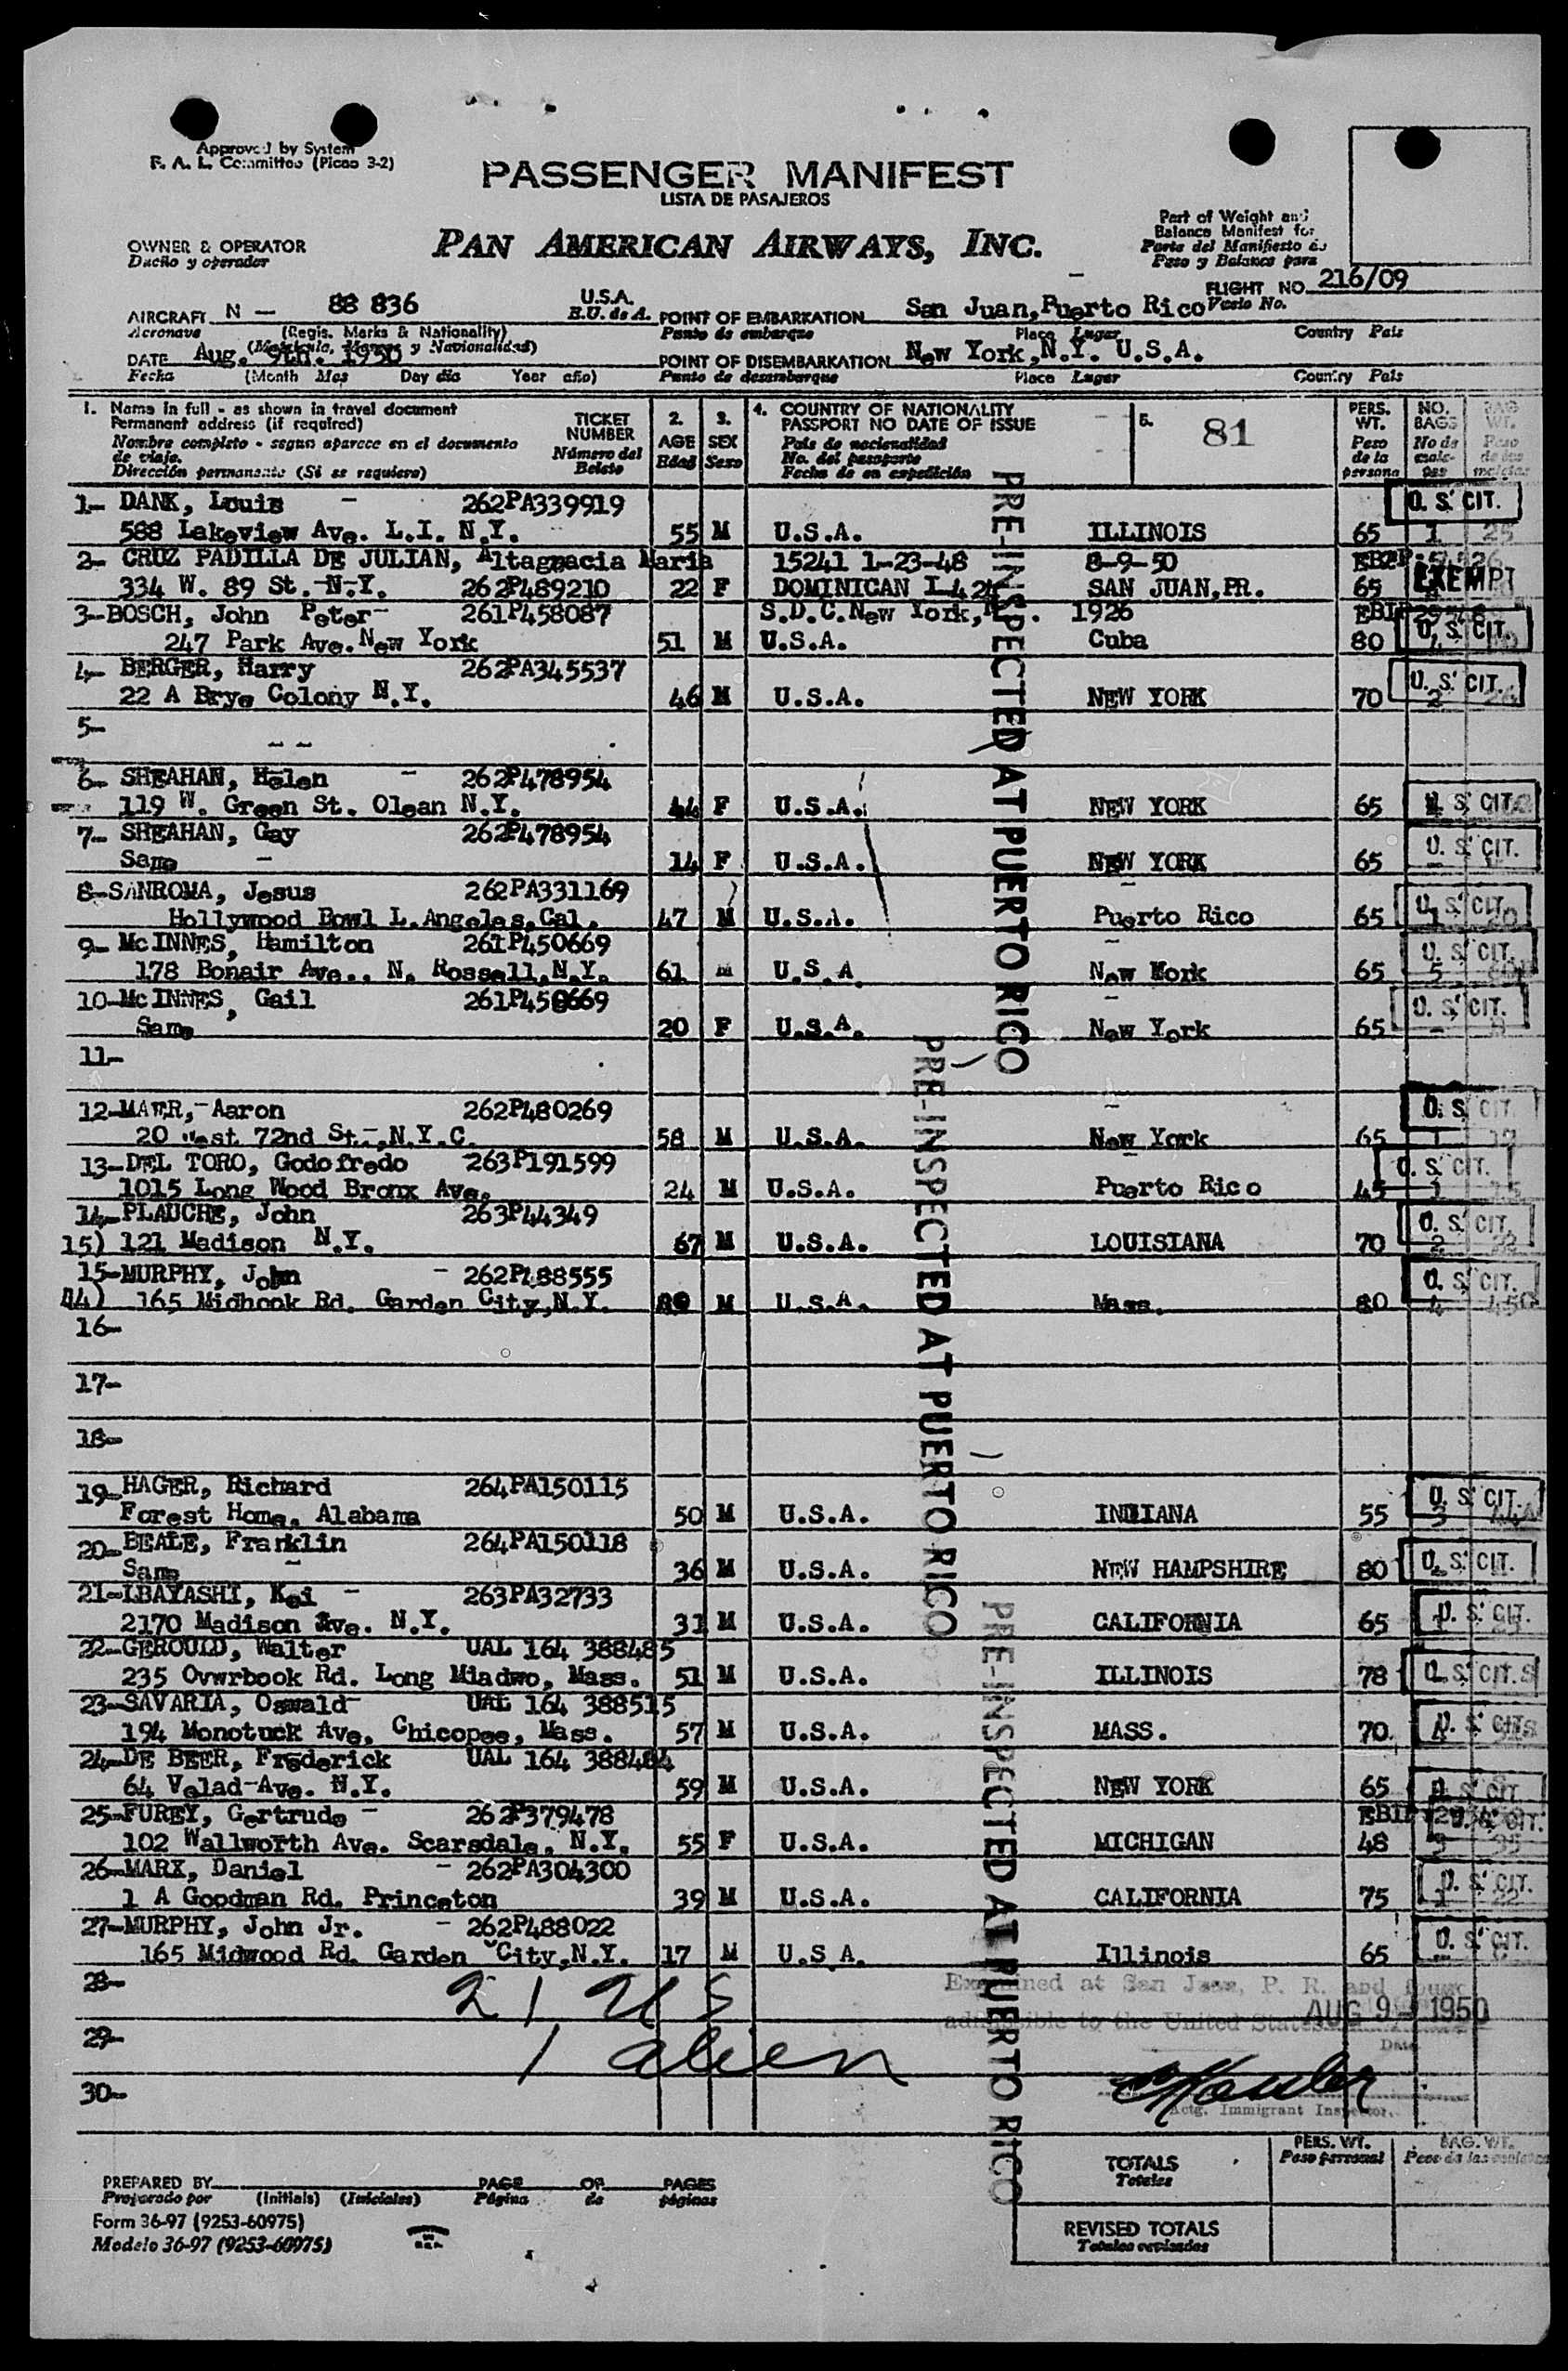 Approved by System
F. A. L. Committee (Picao 3-2)
PASSENGER MANIFEST
LISTA DE PASAJEROS
OWNER & OPERATOR
Dueño y operador
PAN AMERICAN AIRWAYS, INC.
Part of Weight and
Balance Manifest for
Parte del Manifiesto de
Peso y Balance para
FLIGHT NO. 216/09
Vuelo No.
AIRCRAFT N - 88 836 U.S.A. POINT OF EMBARKATION San Juan, Puerto Rico
Aeronave (Regis. Marks & Nationality) E.U. de A. Punto de embarque Place Lugar Country Pais
(Matricula, Marcas y Nacionalidad)
DATE Aug. 9th. 1950 POINT OF DISEMBARKATION New York, N.Y. U.S.A.
Fecha (Month Mes Day dia Year año) Punto de desembarque Place Lugar Country Pais
1. Name in full - as shown in travel document
Permanent address (if required)
Nombre completo - segun aparece en el documento
de viaje.
Dirección permanente (Si se requiere)
TICKET
NUMBER
Número del
Boleto
2.
AGE
Edad
3.
SEX
Sexo
4. COUNTRY OF NATIONALITY
PASSPORT NO DATE OF ISSUE
Pais de nacionalidad
No. del pasaporte
Fecha de su expedición
5. 81
PERS.
WT.
Peso
de la
persona
NO.
BAGS
No de
BAG
WT.
Peso
1- DANK, Louis - 262PA339919 U. S. CIT.
588 Lakeview Ave. L.I. N.Y. 55 M U.S.A. ILLINOIS 65 1 25
2- CRUZ PADILLA DE JULIAN, Altagracia Maria 15241 1-23-48 8-9-50
334 W. 89 St. N.Y. 262P489210 22 F DOMINICAN SAN JUAN, PR. 65 EXEMPT
3-BOSCH, John Peter- 261P458087 S.D.C. New York, 1926
247 Park Ave. New York 51 M U.S.A. Cuba 80 U. S. CIT.
4- BERGER, Harry 262PA345537 U. S. CIT.
22 A Brye Colony N.Y. 46 M U.S.A. NEW YORK 70 2
5-
6- SHEAHAN, Helen - 262P478954
119 W. Green St. Olean N.Y. 44 F U.S.A. NEW YORK 65 U. S. CIT.
7- SHEAHAN, Gay 262P478954 U. S. CIT.
Same - 14 F U.S.A. NEW YORK 65
8-SANROMA, Jesus 262PA331169 U. S. CIT.
Hollywood Bowl L. Angeles, Cal. 47 M U.S.A. Puerto Rico 65
9- McINNES, Hamilton 261P450669 U. S. CIT.
178 Bonair Ave.. N. Rossell, N.Y. 61 M U.S.A New Work 65 5
10-McINNES, Gail 261P450669 U. S. CIT.
Same 20 F U.S.A. New York 65
11-
12-MAER,-Aaron 262P480269 U. S. CIT.
20 West 72nd St.-,N.Y.C. 58 M U.S.A. New York 65 1
13-DEL TORO, Godofredo 263P191599 U. S. CIT.
1015 Long Wood Bronx Ave. 24 M U.S.A. Puerto Rico 45 1
14-PLAUCHE, John 263P44349 U. S. CIT.
15) 121 Madison N.Y. 67 M U.S.A. LOUISIANA 70 2
15-MURPHY, John - 262P488555 U. S. CIT.
14) 165 Midhook Rd. Garden City, N.Y. M U.S.A. Mass. 80 4
16-
17-
18-
19-HAGER, Richard 264PA150115 U. S. CIT.
Forest Home, Alabama 50 M U.S.A. INDIANA 55
20-BEALE, Franklin 264PA150118
Same - 36 M U.S.A. NEW HAMPSHIRE 80 U. S. CIT.
21-IBAYASHI, Kei - 263PA32733
2170 Madison Ave. N.Y. 31 M U.S.A. CALIFORNIA 65 U. S. CIT.
22-GEROULD, Walter UAL 164 388485
235 Ovwrbook Rd. Long Miadwo, Mass. 51 M U.S.A. ILLINOIS 78 U. S. CIT.
23-SAVARIA, Oswald- UAL 164 388515
194 Monotuck Ave, Chicopee, Mass. 57 M U.S.A. MASS. 70 U. S. CIT.
24-DE BEER, Frederick UAL 164 388484
64 Velad-Ave. N.Y. 59 M U.S.A. NEW YORK 65 U. S. CIT
25-FUREY, Gertrude - 262P379478 U. S. CIT.
102 Wallworth Ave. Scarsdale, N.Y. 55 F U.S.A. MICHIGAN 48
26-MARX, Daniel - 262PA304300 U. S. CIT.
1 A Goodman Rd. Princeton 39 M U.S.A. CALIFORNIA 75 1 22
27-MURPHY, John Jr. - 262P488022 U. S. CIT.
165 Midwood Rd. Garden City, N.Y. 17 M U.S.A. Illinois 65
28-
29-
30-
21 US
1 alien
PRE-INSPECTED AT PUERTO RICO
PRE-INSPECTED AT PUERTO RICO
PRE-INSPECTED AT PUERTO RICO
Examined at San Juan, P. R. and found
admissible to the United States AUG 9- 1950
Date
Actg. Immigrant Inspector.
TOTALS
Totales
PERS. WT.
Peso personal
BAG. WT.
REVISED TOTALS
Totales revisados
PREPARED BY PAGE OF PAGES
Preparado por (Initials) (Iniciales) Página de páginas
Form 36-97 (9253-60975)
Modelo 36-97 (9253-60975)